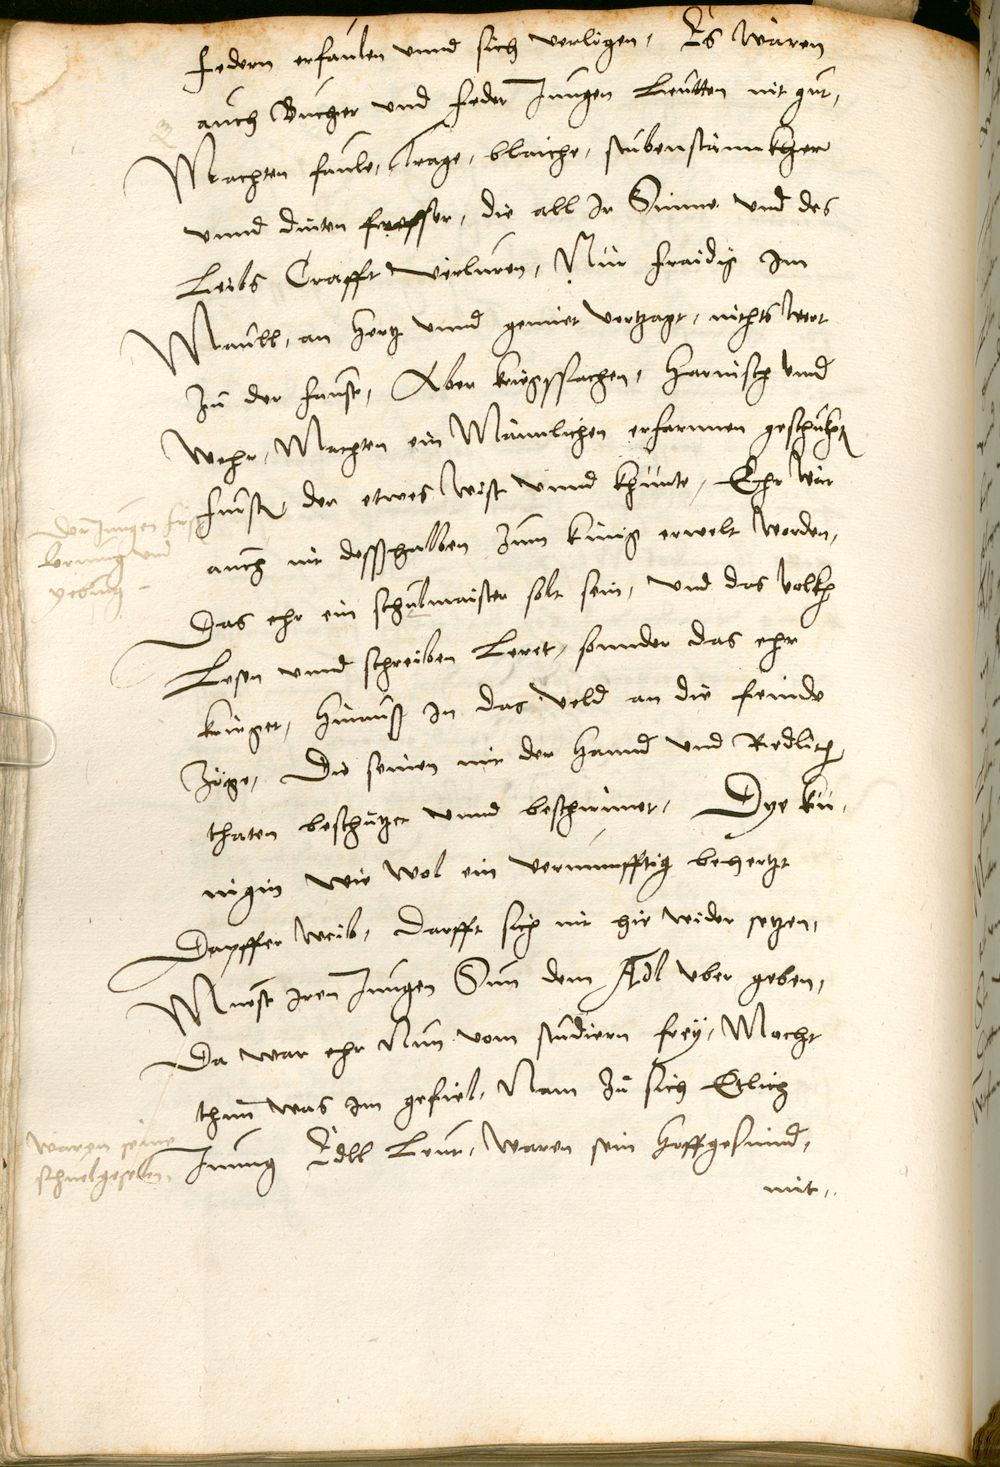 Federn erfaulen unnd sich verligen, Es wären
auch Bücher und Feder Jungen Leütten nit gut,
Machten faule, Trage, blaiche, stubenstännkher
unnd dinten fresser, die all Ir Sinne und des
Leibs Crafft verluren, Nür fraidig Im
Maull, an hertz unnd gemiet vertzagt, nichts wert
zu der faust, Aber kriegssachen, Harnisch unnd
wehr, Machten ein Männlichen erfarnnen geschickhten
fürsten, der etwas wist unnd khünte, Ehr wär
auch nit desshalben zum künig erwelt worden,
Das ehr ein schulmaister solt sein, und das volkh
Lesen unnd schreiben Leret, sonnder das ehr
krieget, Hinauß In das veld an die feinde
züge, Die seinen mit der hannd und Redlich
thaten beschützet unnd beschirmet, Dye kü-
nigin wie wol ein vernünfftig behertzt
Dapffer weib, Darfft sich nit hie wider setzen,
Muest Iren Jungen Sun dem Adl uber geben,
Da war ehr Nun vom studiern frey, Mocht
thun was Im gefiel, Nam zu sich Etlich
Junng Edll Leut, Waren sein Hoffgesind,
mit,
Des Jungen
Lernung und
yebung
Waren seine
schuelgeselen